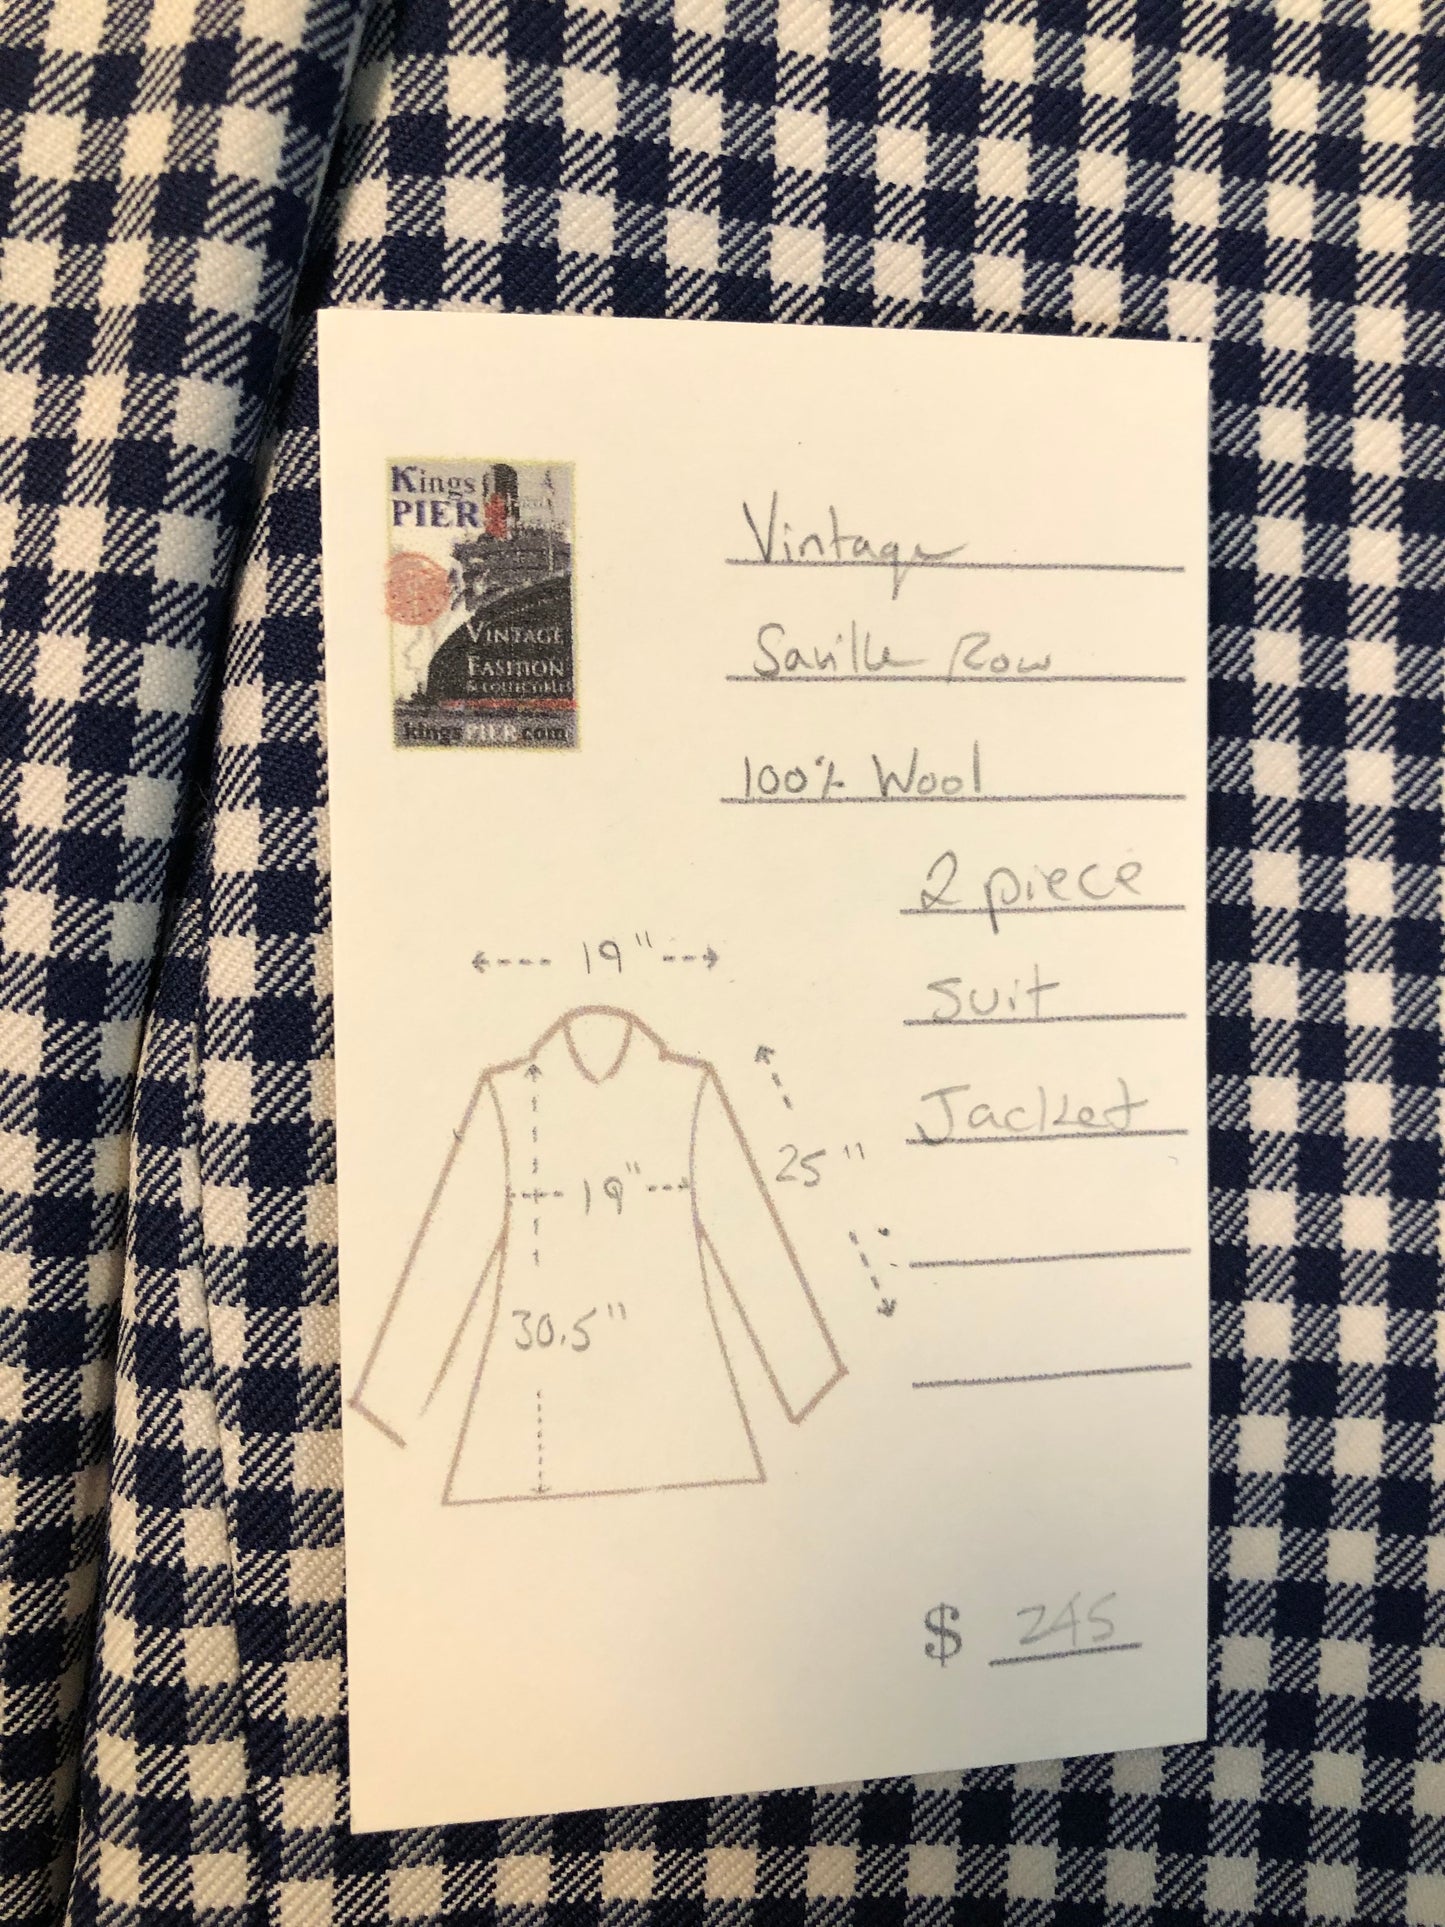 Kings
PIER
VINTAGE
FASHION
& COLLECTIBLES
kingsPIER.com
Vintage
Saville Row
100% Wool
2 piece
suit
Jacket
19"
25"
19"
30.5"
$ 245